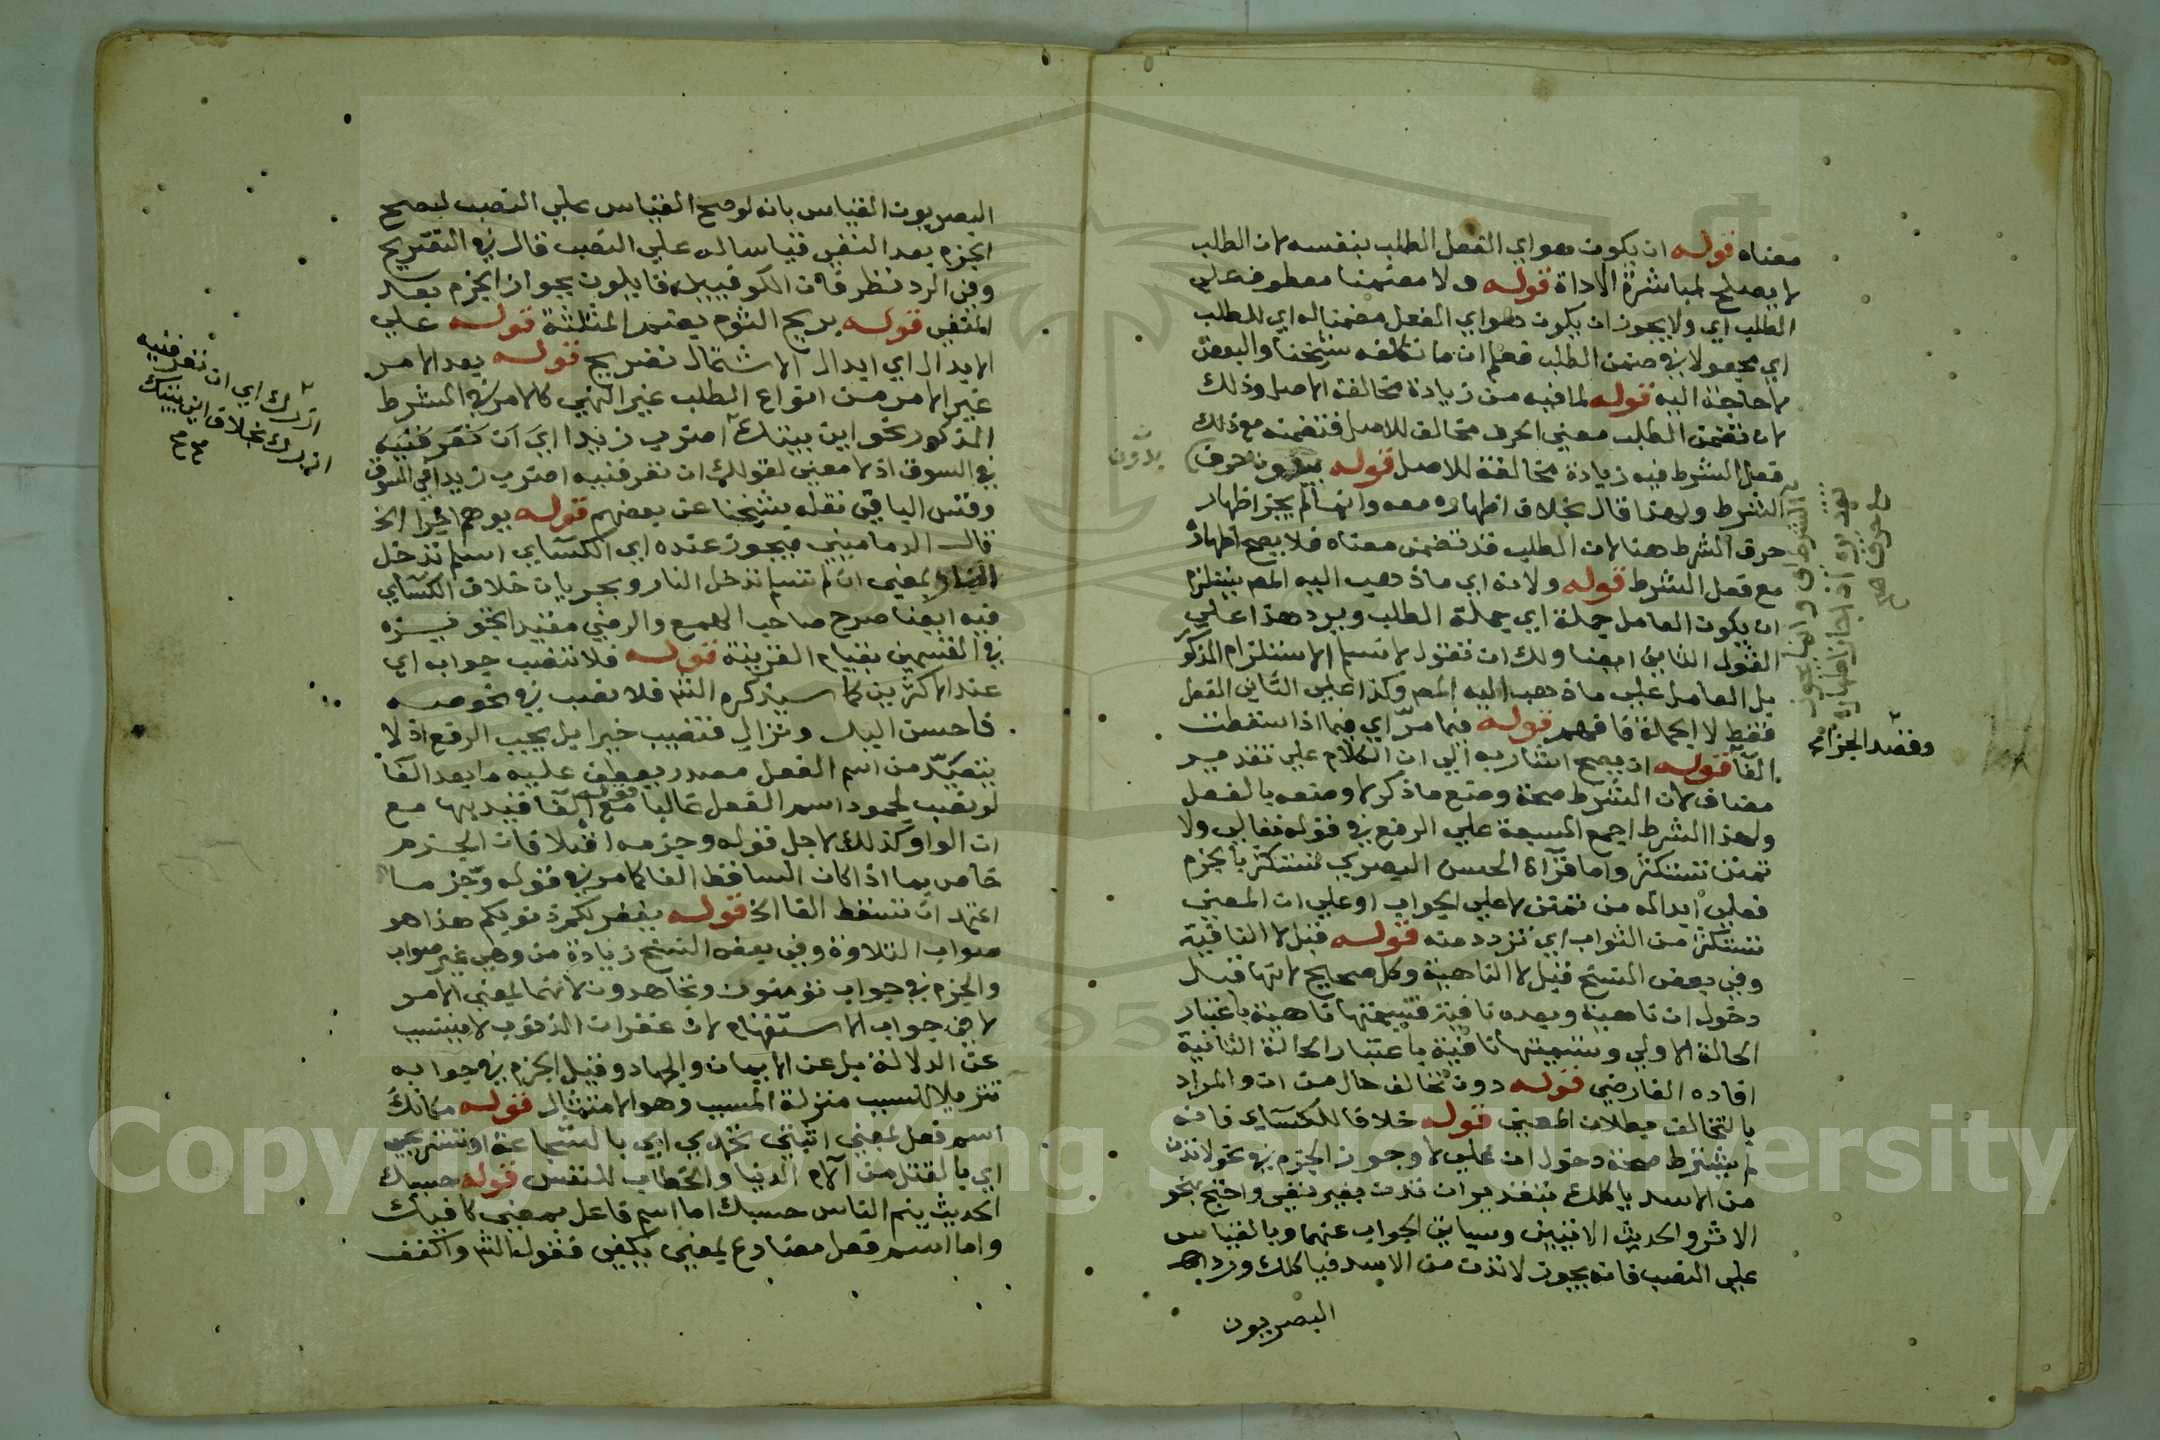 معناه قوله ان يكون هو اي الفعل الطلب بنفسه لان الطلب
لا يصلح لمباشرة الاداة قوله ولا مضمنا معطوف علي
الطلب اي ولا يجوز ان يكون هو اي الفعل مضمنا له اي للطلب
اي مجعولا في ضمن الطلب فعلم ان ما تكلفه شيخنا والبعض
لا حاجة اليه قوله لما فيه من زيادة مخالفة الاصل وذلك
لان تضمن الطلب معني الحرف مخالف للاصل فتضمنه مع ذلك
فعل الشرط فيه زيادة مخالفة للاصل قوله بدون حرف
الشرط ولهذا قال بخلاف اظهاره معه وانما لم يجز اظهار
حرف الشرط هنا لان الطلب قد تضمن معناه فلا يصح اظهاره
مع فعل الشرط قوله ولانه اي ما ذهب اليه المص يستلزم
ان يكون العامل جملة اي جملة الطلب ويرد هذا علي
القول الثاني ايضا ولك ان تقول لا نسلم الاستلزام المذكور
بل العامل علي ما ذهب اليه المص وكذا علي الثاني الفعل
فقط لا الجملة فافهم قوله فيما مر اي فيما اذا سقطت
الفا قوله ان يصح اشار به الي ان الكلام علي تقدير
مضاف لان الشرط صحة وضع ما ذكر لا وضعه بالفعل
ولهذا الشرط اجمع السبعة علي الرفع في قوله تعالي ولا
تمنن تستكثر واما قراة الحسن البصري تستكثر بالجزم
فعلي ابداله من تمنن لا علي الجواب او علي ان المعني
تستكثر من الثواب اي تزدد منه قوله قبل لا النافية
وفي بعض النسخ قبل لا الناهية وكل صحيح لانها قبل
دخول ان ناهية وبعده نافية فتسميتها ناهية باعتبار
الحالة الاولي وتسميتها نافية باعتبار الحالة الثانية
افاده الفارضي قوله دون تخالف حال من ان والمراد
بالتخالف بطلان المعني قوله خلافا للكسآي فانه
لم يشترط صحة دخول ان علي لا وجوز الجزم في نحو لا تدن
من الاسد ياكلك بتقدير ان تدن بغير نفي واحتج بنحو
الاثر والحديث الاتيين وسياتي الجواب عنهما وبالقياس
علي النصب فانه يجوز لا تدن من الاسد فياكلك ورد
البصريون
بدون
وقصد الجزا صح
البصريون القياس بانه لو صح القياس علي النصب لصح
الجزم بعد النفي قياسا له علي النصب قال في التصريح
وفي الرد نظر فان الكوفيين قايلون بجواز الجزم بعد
المنفي قوله بريح الثوم بضم المثلثة قوله علي
الابدال اي ابدال الاشتمال تصريح قوله بعد الامر
غير الامر من انواع الطلب غير النهي كالامر في الشرط
المذكور نحو اين بيتك اضرب زيدا اي ان تعرفنيه
في السوق اذ لا معني لقولك ان تعرفنيه اضرب زيدا في السوق
وقس الباقي نقله شيخنا عن بعضهم قوله يوهم اجرا الخ
قال الدماميني فيجوز عنده اي الكسآي اسلم تدخل
النار بمعني ان لم تسلم تدخل النار وبجريان خلاف الكسآي
فيه ايضا صرح صاحب الهمع والرضي مقيدا تجويزه
في القسمين بقيام القرينة قوله فلا تنصب جوابه اي
عند الاكثرين كما سيذكره الش فلا نصب في نحو صه
فاحسن اليك ونزال فتصيب خيرا بل يجب الرفع اذ لا
يتصيد من اسم الفعل مصدر يعطف عليه ما بعد الفا
لو نصب لجمود اسم الفعل غالبا قوله مع الفا قيد بها مع
ان الواو كذلك لاجل قوله وجزمه اقبلا فان الجزم
خاص بما اذا كان الساقط الفا كما مر في قوله وجزما
اعتمد ان تسقط الفا الخ قوله يغفر لكم ذنوبكم هذا هو
صواب التلاوة وفي بعض النسخ زيادة من وهي غير صواب
والجزم في جواب تؤمنون وتجاهدون لانهما بمعني الامر
لا في جواب الاستفهام لان غفران الذنوب لا يتسبب
عن الدلالة بل عن الايمان والجهاد وقيل الجزم في جوابه
تنزيلا للسبب منزلة المسبب وهو الامتثال قوله مكانك
اسم فعل بمعني اثبتي تحمدي اي بالشجاعة او تستريحي
اي بالقتل من آلام الدنيا والخطاب للنفس قوله حسبك
الحديث ينم الناس حسبك اما اسم فاعل بمعني كافيك
واما اسم فعل مضارع بمعني يكفي فقول الش واكفف